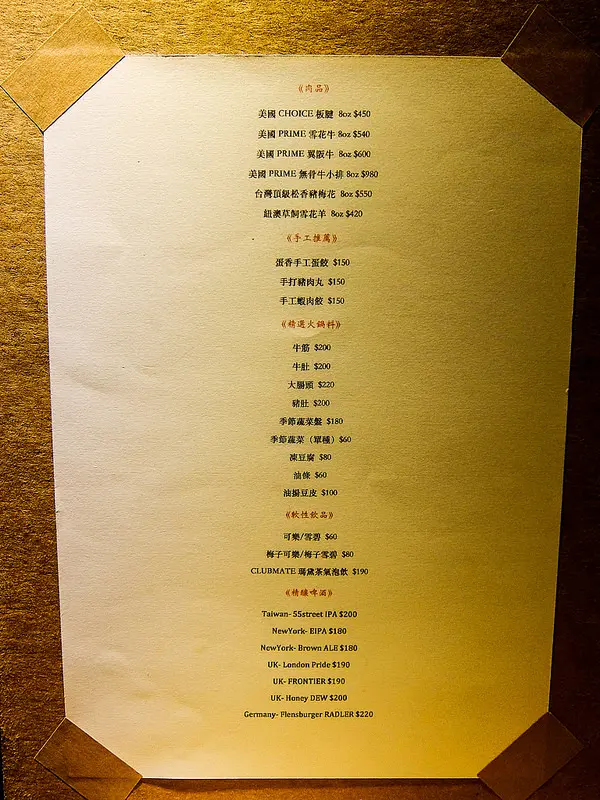 《肉品》
美國 CHOICE 板腱 8oz $450
美國 PRIME 雪花牛 8oz $540
美國 PRIME 翼板牛 8oz $600
美國 PRIME 無骨牛小排 8oz $980
台灣頂級松香豬梅花 8oz $550
紐澳草飼雪花羊 8oz $420
《手工推薦》
蛋香手工蛋餃 $150
手打豬肉丸 $150
手工蝦肉餃 $150
《精選火鍋料》
牛筋 $200
牛肚 $200
大腸頭 $220
豬肚 $200
季節蔬菜盤 $180
季節蔬菜（單種）$60
凍豆腐 $80
油條 $60
油揚豆皮 $100
《軟性飲品》
可樂/雪碧 $60
梅子可樂/梅子雪碧 $80
CLUBMATE 瑪黛茶氣泡飲 $190
《精釀啤酒》
Taiwan- 55street IPA $200
NewYork- EIPA $180
NewYork- Brown ALE $180
UK- London Pride $190
UK- FRONTIER $190
UK- Honey DEW $200
Germany- Flensburger RADLER $220